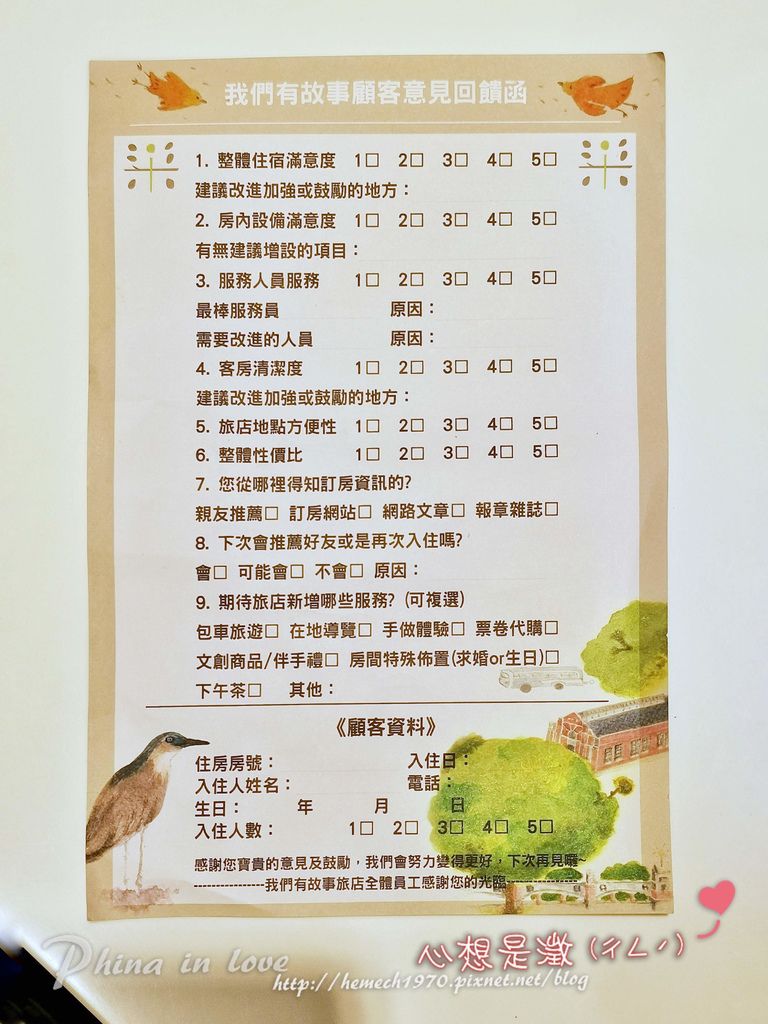 我們有故事顧客意見回饋函
1. 整體住宿滿意度 1□ 2□ 3□ 4□ 5□
建議改進加強或鼓勵的地方：
2. 房內設備滿意度 1□ 2□ 3□ 4□ 5□
有無建議增設的項目：
3. 服務人員服務 1□ 2□ 3□ 4□ 5□
最棒服務員 原因：
需要改進的人員 原因：
4. 客房清潔度 1□ 2□ 3□ 4□ 5□
建議改進加強或鼓勵的地方：
5. 旅店地點方便性 1□ 2□ 3□ 4□ 5□
6. 整體性價比 1□ 2□ 3□ 4□ 5□
7. 您從哪裡得知訂房資訊的?
親友推薦□ 訂房網站□ 網路文章□ 報章雜誌□
8. 下次會推薦好友或是再次入住嗎?
會□ 可能會□ 不會□ 原因：
9. 期待旅店新增哪些服務? (可複選)
包車旅遊□ 在地導覽□ 手做體驗□ 票卷代購□
文創商品/伴手禮□ 房間特殊佈置(求婚or生日)□
下午茶□ 其他：
《顧客資料》
住房房號： 入住日：
入住人姓名： 電話：
生日： 年 月 日
入住人數： 1□ 2□ 3□ 4□ 5□
感謝您寶貴的意見及鼓勵，我們會努力變得更好，下次再見囉~
----------------我們有故事旅店全體員工感謝您的光臨----------------
Phina in love
心想是澂 (ㄔㄥˊ)
http://hemech1970.pixnet.net/blog